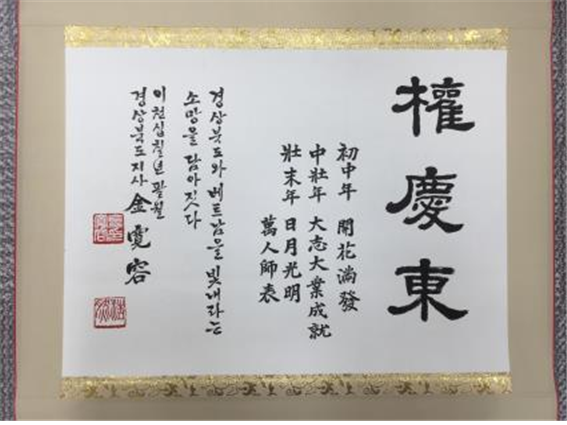 權慶東
初中年 開花滿發
中壯年 大志大業成就
壯末年 日月光明
萬人師表
경상북도와 베트남을 빛내라는
소망을 담아 짓다
이천십칠년 팔월
경상북도지사 金寬容